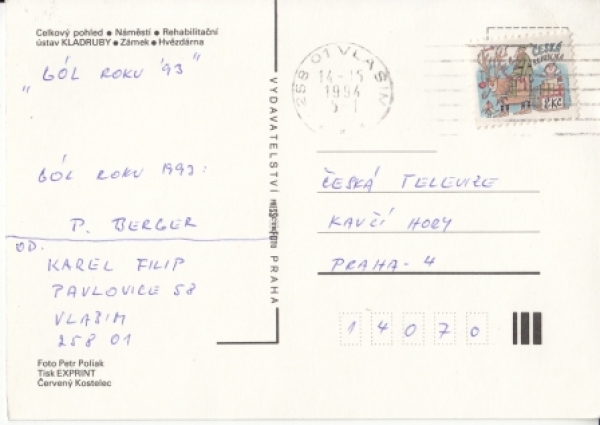 Celkový pohled • Náměstí • Rehabilitační
ústav KLADRUBY • Zámek • Hvězdárna
"GÓL ROKU '93"
GÓL ROKU 1993:
P. BERGER
OD.
KAREL FILIP
PAVLOVICE 58
VLAŠIM
258 01
Foto Petr Poliak
Tisk EXPRINT
Červený Kostelec
VYDAVATELSTVÍ PRESSFOTO PRAHA
258 01 VLAŠIM
14-15
1994
5 1
ČESKÁ
REPUBLIKA
2 Kč
ČESKÁ TELEVIZE
KAVČÍ HORY
PRAHA - 4
14070